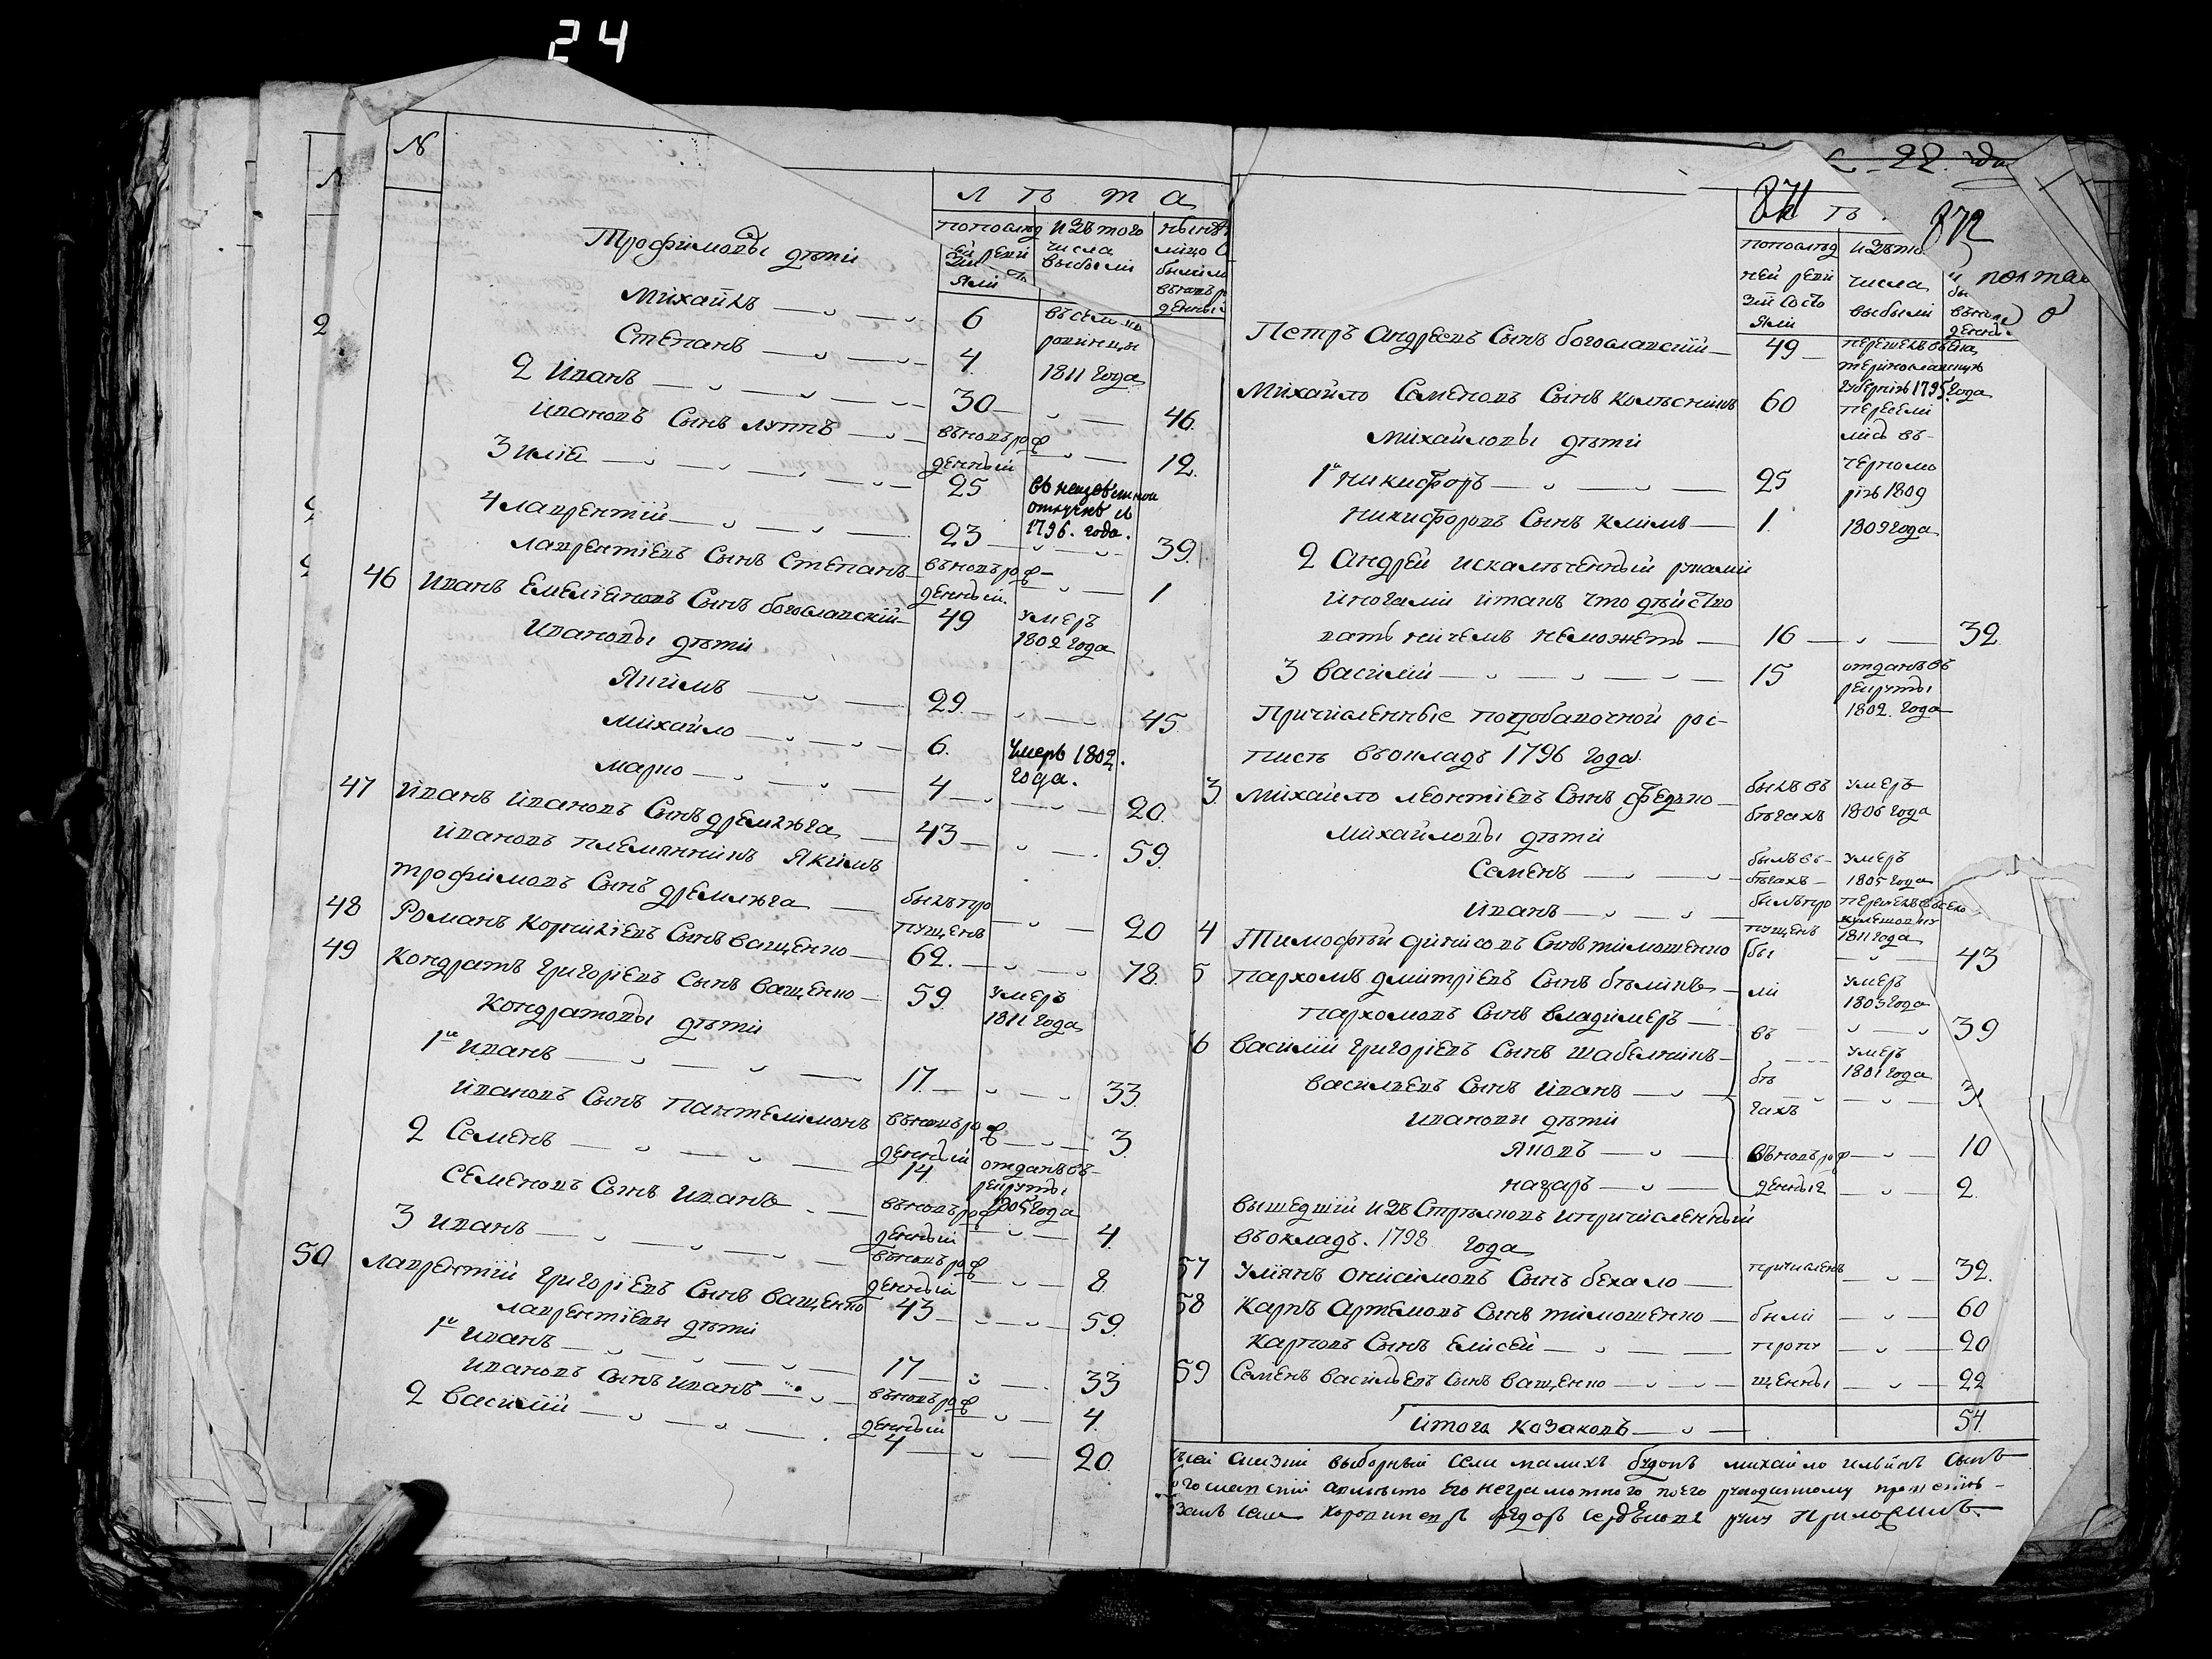 24
№
Л Ѣ Т А
попослѣд ней ревизіи состояли
изъ того числа выбыли
Трофимовы дѣти
Михайла 6 въ селѣ
Степанъ 4 1811 года
2 Иванъ 30 46
Ивановъ Сынъ Луппъ въновьрожденный 12
3 Илiя 25 въ неизвестной отлучке с 1796. года.
4 Лаврентій 23 39
Лаврентіевъ Сынъ Степанъ въновьрожденный 1
46 Иванъ Емеліановъ Сынъ богославскій 49 умеръ 1802 года
Ивановы дѣти
Якимъ 29 45
Михайло 6 Умеръ 1802. года.
Марко 4 20
47 Иванъ Ивановъ Сынъ дремлюга 43 59
Ивановъ племянникъ Якимъ
трофимовъ Сынъ дремлюга былъ пропущенъ 20
48 Романъ Корнилiевъ Сынъ Ващенко 62. 78
49 Кондратъ Григоріевъ Сынъ Ващенко 59 умеръ 1811 года
Кондратовы дѣти
1й Иванъ 17 33
Ивановъ Сынъ Пантелимонъ въновьрожденный 3
2 Семенъ 14 отданъ въ рекруты 1805 года
Семеновъ Сынъ Иванъ въновьрожденный 4
3 Иванъ въновьрожденный 8
50 Лаврентій Григоріевъ Сынъ Ващенко 43 59
Лаврентіевы дѣти
1й Иванъ 17 33
Ивановъ Сынъ Иванъ въновьрожденный 4
2 Василій 4 20
22
871
872
попослѣд ней ревизій состояли
числа выбыли
Петръ Андреевъ Сынъ богославскій 49 перешелъ въ Екатеринославскую губернію 1795 года
Михайло Семеновъ Сынъ Колѣсникъ 60 переселились въ
Михайловы дѣти
1й Никифоръ 25 Черноморію 1809
Никифоровъ Сынъ Климъ 1 1809 года
2 Андрей искалѣченный руками
иногами итакъ что дѣйство
вать ничемъ неможетъ 16 32
3 Василій 15 отданъ въ рекруты 1802 года
Причисленные подобавочной ро
писѣ въокладъ 1796 года
3 Михайло Леонтіевъ Сынъ Федько былъ въ бѣгахъ умеръ 1806 года
Михайловы дѣти
Семенъ былъ въ бѣгахъ умеръ 1805 года
Иванъ былъ пропущенъ 1811 года
4 Тимофѣй Динисовъ Сынъ Тимошенко бы 43
5 Пархомъ Дмитріевъ Сынъ бѣликъ ли умеръ 1803 года
Пархомовъ Сынъ Владимеръ въ 39
6 Василій Григоріевъ Сынъ Шабелникъ бѣ умеръ 1801 года
Васильевъ Сынъ Иванъ гахъ 31
Ивановы дѣти
Яковъ въновьрож 10
Назаръ денные 2
вышедшій изъ Стрѣлковъ ипричисленный
въокладъ. 1798 года
57 Уліянъ Онисимовъ Сынъ бехало причисленъ 32.
58 Карпъ Артемовъ Сынъ Тимошенко были 60
Карповъ Сынъ Елисей пропу 20
59 Семенъ Васильевъ Сынъ Ващенко щенны 22
Итого козаковъ 54
выборный михайло ильинъ сынъ
его неграмотного поего прошенію
федоръ руку приложилъ